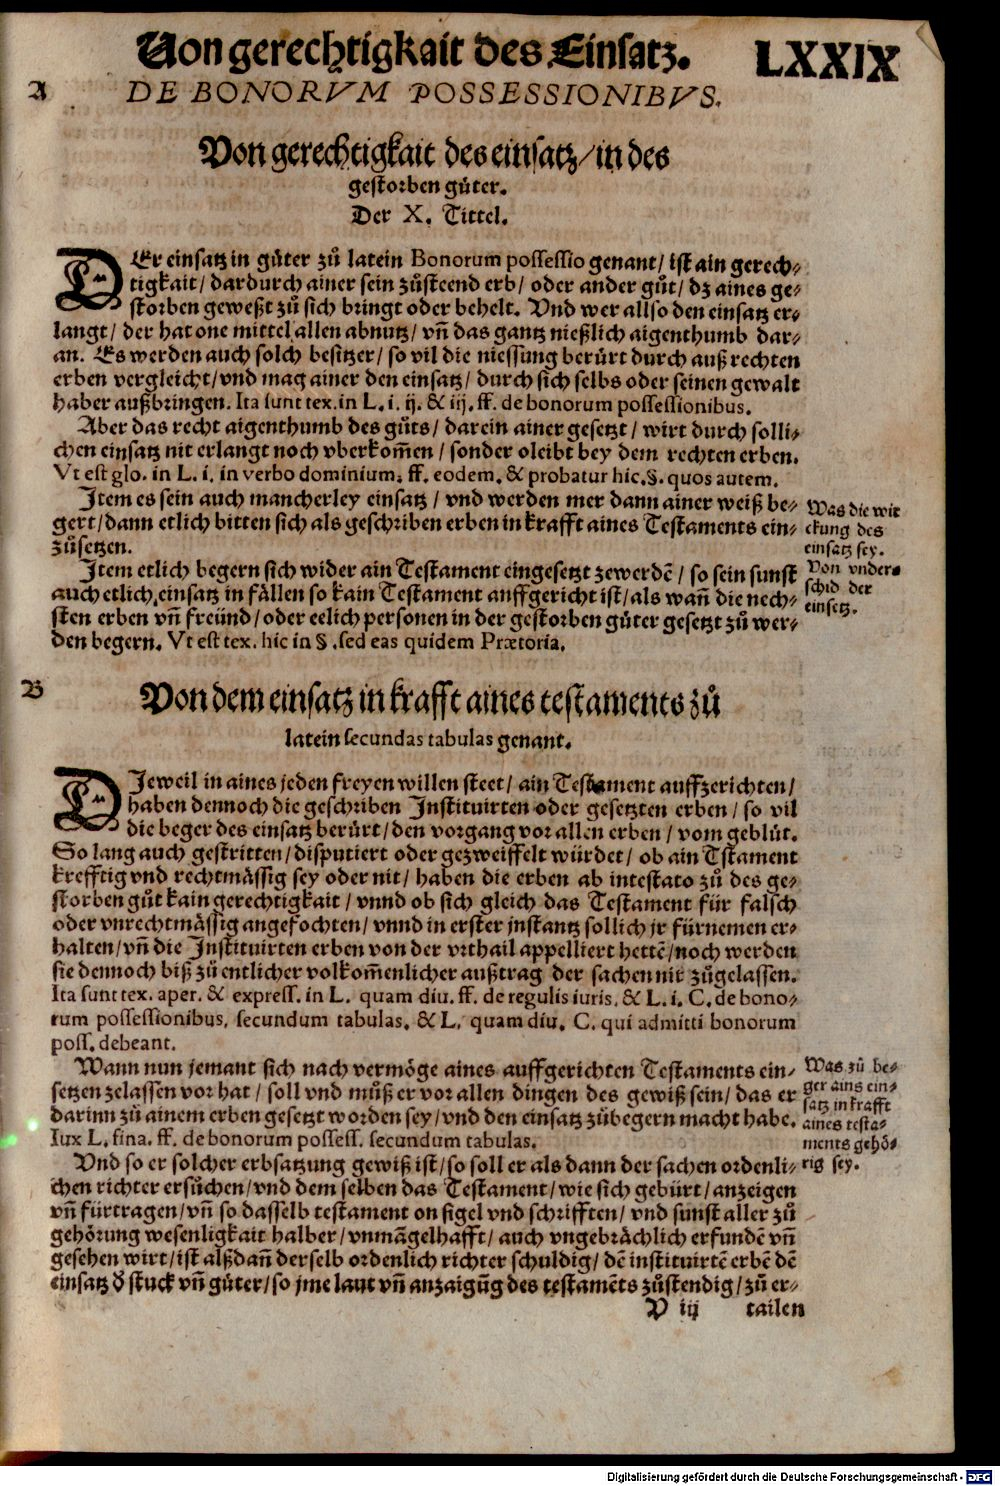 Von gerechtigkait des Einsatz. LXXIX
A DE BONORVM POSSESSIONIBVS.
Von gerechtigkait des einsatz/in des
gestorben gůter.
Der X. Tittel.
DEr einsatz in gůter zů latein Bonorum possessio genant/ ist ain gerech-
tigkait/ dardurch ainer sein zůsteend erb/ oder ander gůt/ dz aines ge-
storben geweßt zů sich bringt oder behelt. Vnd wer allso den einsatz er-
langt/ der hat one mittel allen abnutz/ vñ das gantz nießlich aigenthumb dar-
an. Es werden auch solch besitzer/ so vil die niessung berürt durch auß rechten
erben vergleicht/vnd mag ainer den einsatz/ durch sich selbs oder seinen gewalt
haber außbringen. Ita sunt tex. in L. i. ij. & iij. ff. de bonorum possessionibus.
Aber das recht aigenthumb des gůts/ darein ainer gesetzt/ wirt durch solli-
chen einsatz nit erlangt noch vberkom̃en/ sonder bleibt bey dem rechten erben.
Vt est glo. in L. i. in verbo dominium. ff. eodem. & probatur hic. §. quos autem.
Item es sein auch mancherley einsatz/ vnd werden mer dann ainer weiß be-
gert/dann etlich bitten sich als geschriben erben in krafft aines Testaments ein-
zůsetzen.
Was die wir
ckung des
einsatz sey.
Von vnder-
schid der
einsetz.
Item etlich begern sich wider ain Testament eingesetzt zewerdẽ/ so sein sunst
auch etlich einsatz in fällen so kain Testament auffgericht ist/ als wañ die nech-
sten erben vñ freünd/ oder eelich personen in der gestorben gůter gesetzt zů wer-
den begern. Vt est tex. hic in §. sed eas quidem Prætoria.
B Von dem einsatz in krafft aines testaments zů
latein secundas tabulas genant.
DJeweil in aines jeden freyen willen steet/ ain Testament auffzerichten/
haben dennoch die geschriben Instituirten oder gesetzten erben/ so vil
die beger des einsatz berürt/ den vorgang vor allen erben/ vom geblůt.
So lang auch gestritten/ disputiert oder gezweiffelt würdet/ ob ain Tstament
krefftig vnd rechtmässig sey oder nit/ haben die erben ab intestato zů des ge-
storben gůt kain gerechtigkait/ vnnd ob sich gleich das Testament für falsch
oder vnrechtmässig angefochten/ vnnd in erster jnstantz sollich jr fürnemen er-
halten/vñ die Instituirten erben von der vrthail appelliert hettẽ/noch werden
sie dennoch biß zů entlicher volkom̃enlicher außtrag der sachen nit zůgelassen.
Ita sunt tex. aper. & express. in L. quam diu. ff. de regulis iuris. & L. i. C. de bono-
rum possessionibus. secundum tabulas. & L. quam diu. C. qui admitti bonorum
poss. debeant.
Wann nun jemant sich nach vermöge aines auffgerichten Testaments ein-
setzen zelassen vor hat/ soll vnd můß er vor allen dingen des gewiß sein/ das er
darinn zů ainem erben gesetzt worden sey/ vnd den einsatz zůbegern macht habe.
Iux L. fina. ff. de bonorum possess. secundum tabulas.
Was zů be-
ger ains ein-
satz in krafft
aines testa-
ments gehö-
rig sey.
Vnd so er solcher erbsatzung gewiß ist/ so soll er als dann der sachen ordenli-
chen richter ersůchen/ vnd dem selben das Testament/ wie sich gebürt/ anzeigen
vñ fürtragen/ vñ so dasselb testament on sigel vnd schrifften/ vnd sunst aller zů
gehörung wesenligkait halber/ vnmãgelhafft/ auch vngebrächlich erfundẽ vñ
gesehen wirt/ ist alßdañ derselb ordenlich richter schuldig/ dẽ instituirtẽ erbẽ dẽ
einsatz d̕ stuck vñ gůter/ so jme laut vñ anzaigũg des testamẽts zůstendig/ zů er-
V iij tailen
Digitalisierung gefördert durch die Deutsche Forschungsgemeinschaft - DFG